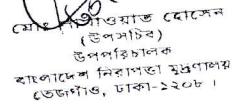 মোঃ আওয়াত হোসেন
(উপসচিব)
উপপরিচালক
বাংলাদেশ নিরাপত্তা মুদ্রণালয়
তেজগাঁও, ঢাকা-১২০৮।